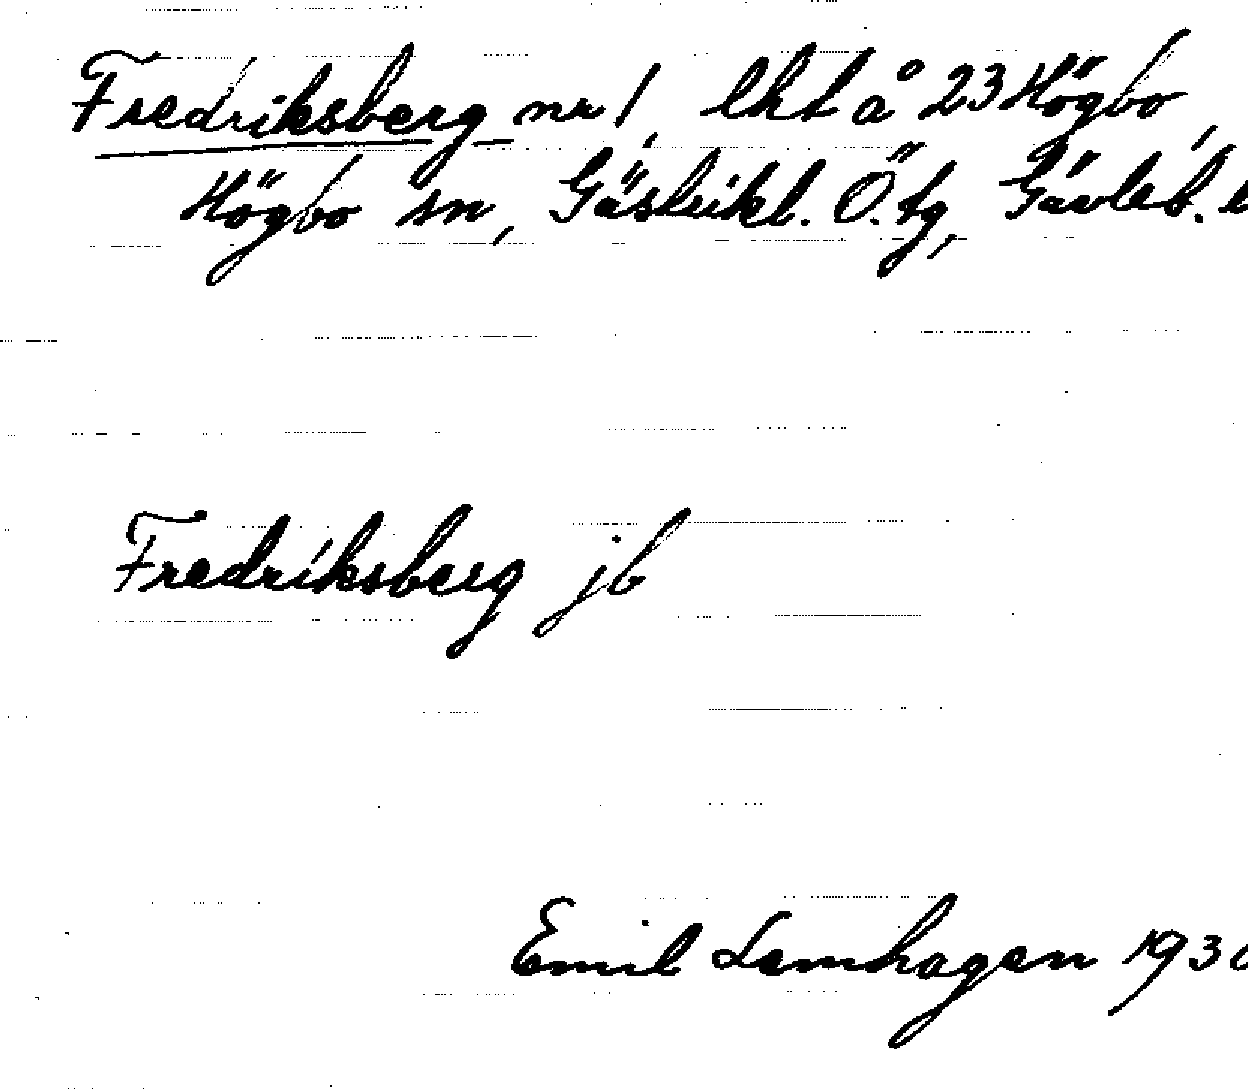 Fredriksberg nr 1, lht å 23 Högbo,
Högbo sn, Gästrikl. Ö. tg, Gävleb. l
Fredriksberg jb
Emil Lamhagen 1930